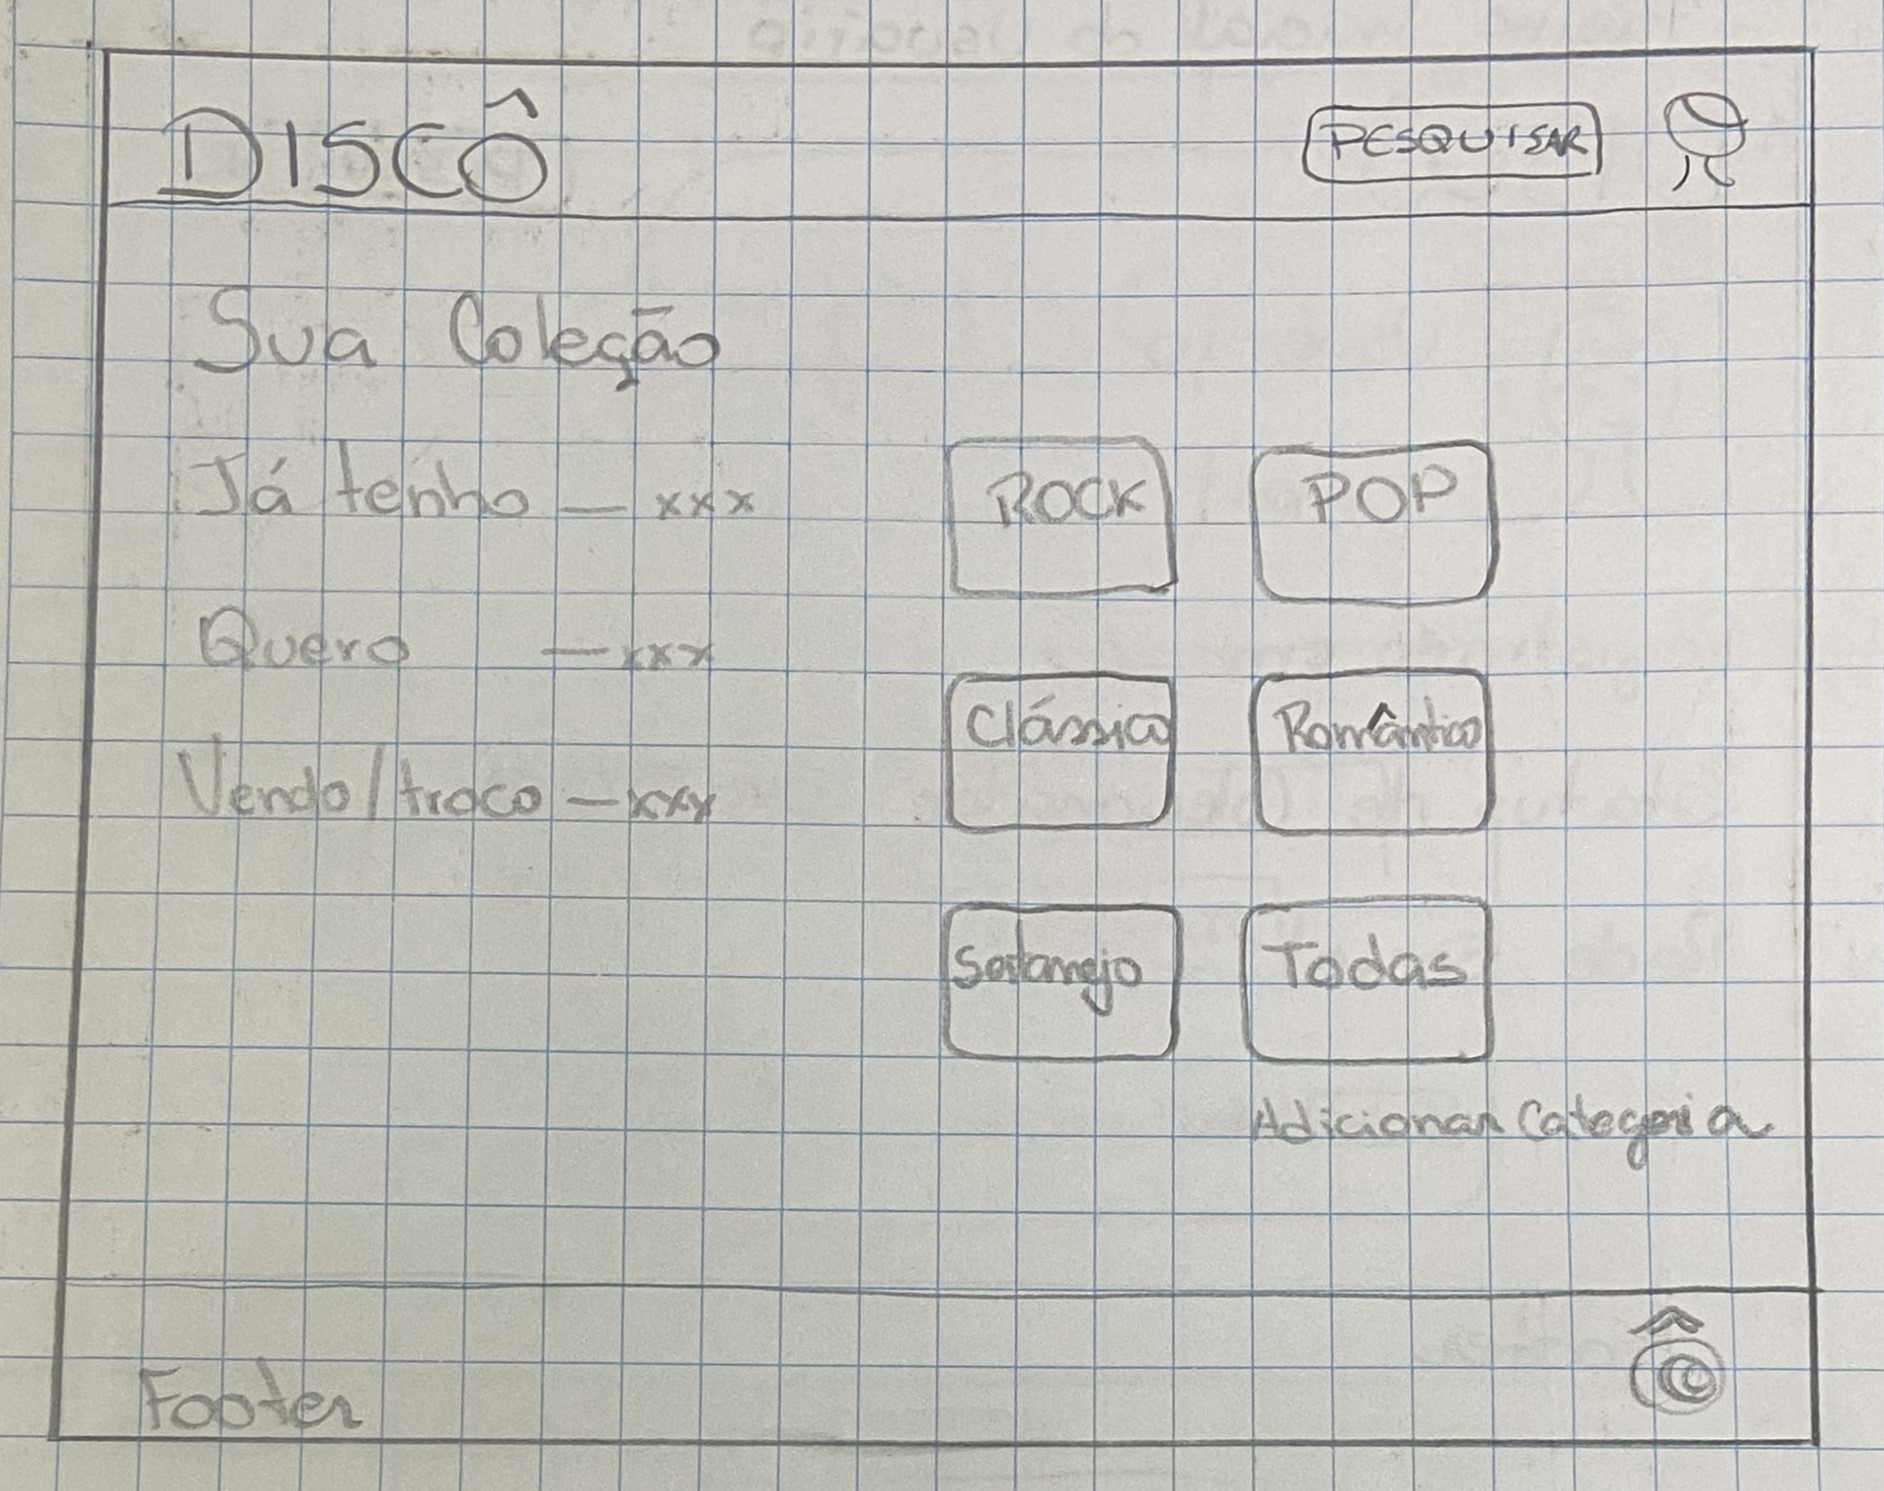 DISCÔ
PESQUISAR
Sua Coleção
Já tenho — xxx
Quero — xxx
Vendo/troco — xxx
ROCK
POP
Clássico
Romântico
Sertanejo
Todas
Adicionar Categoria
Footer